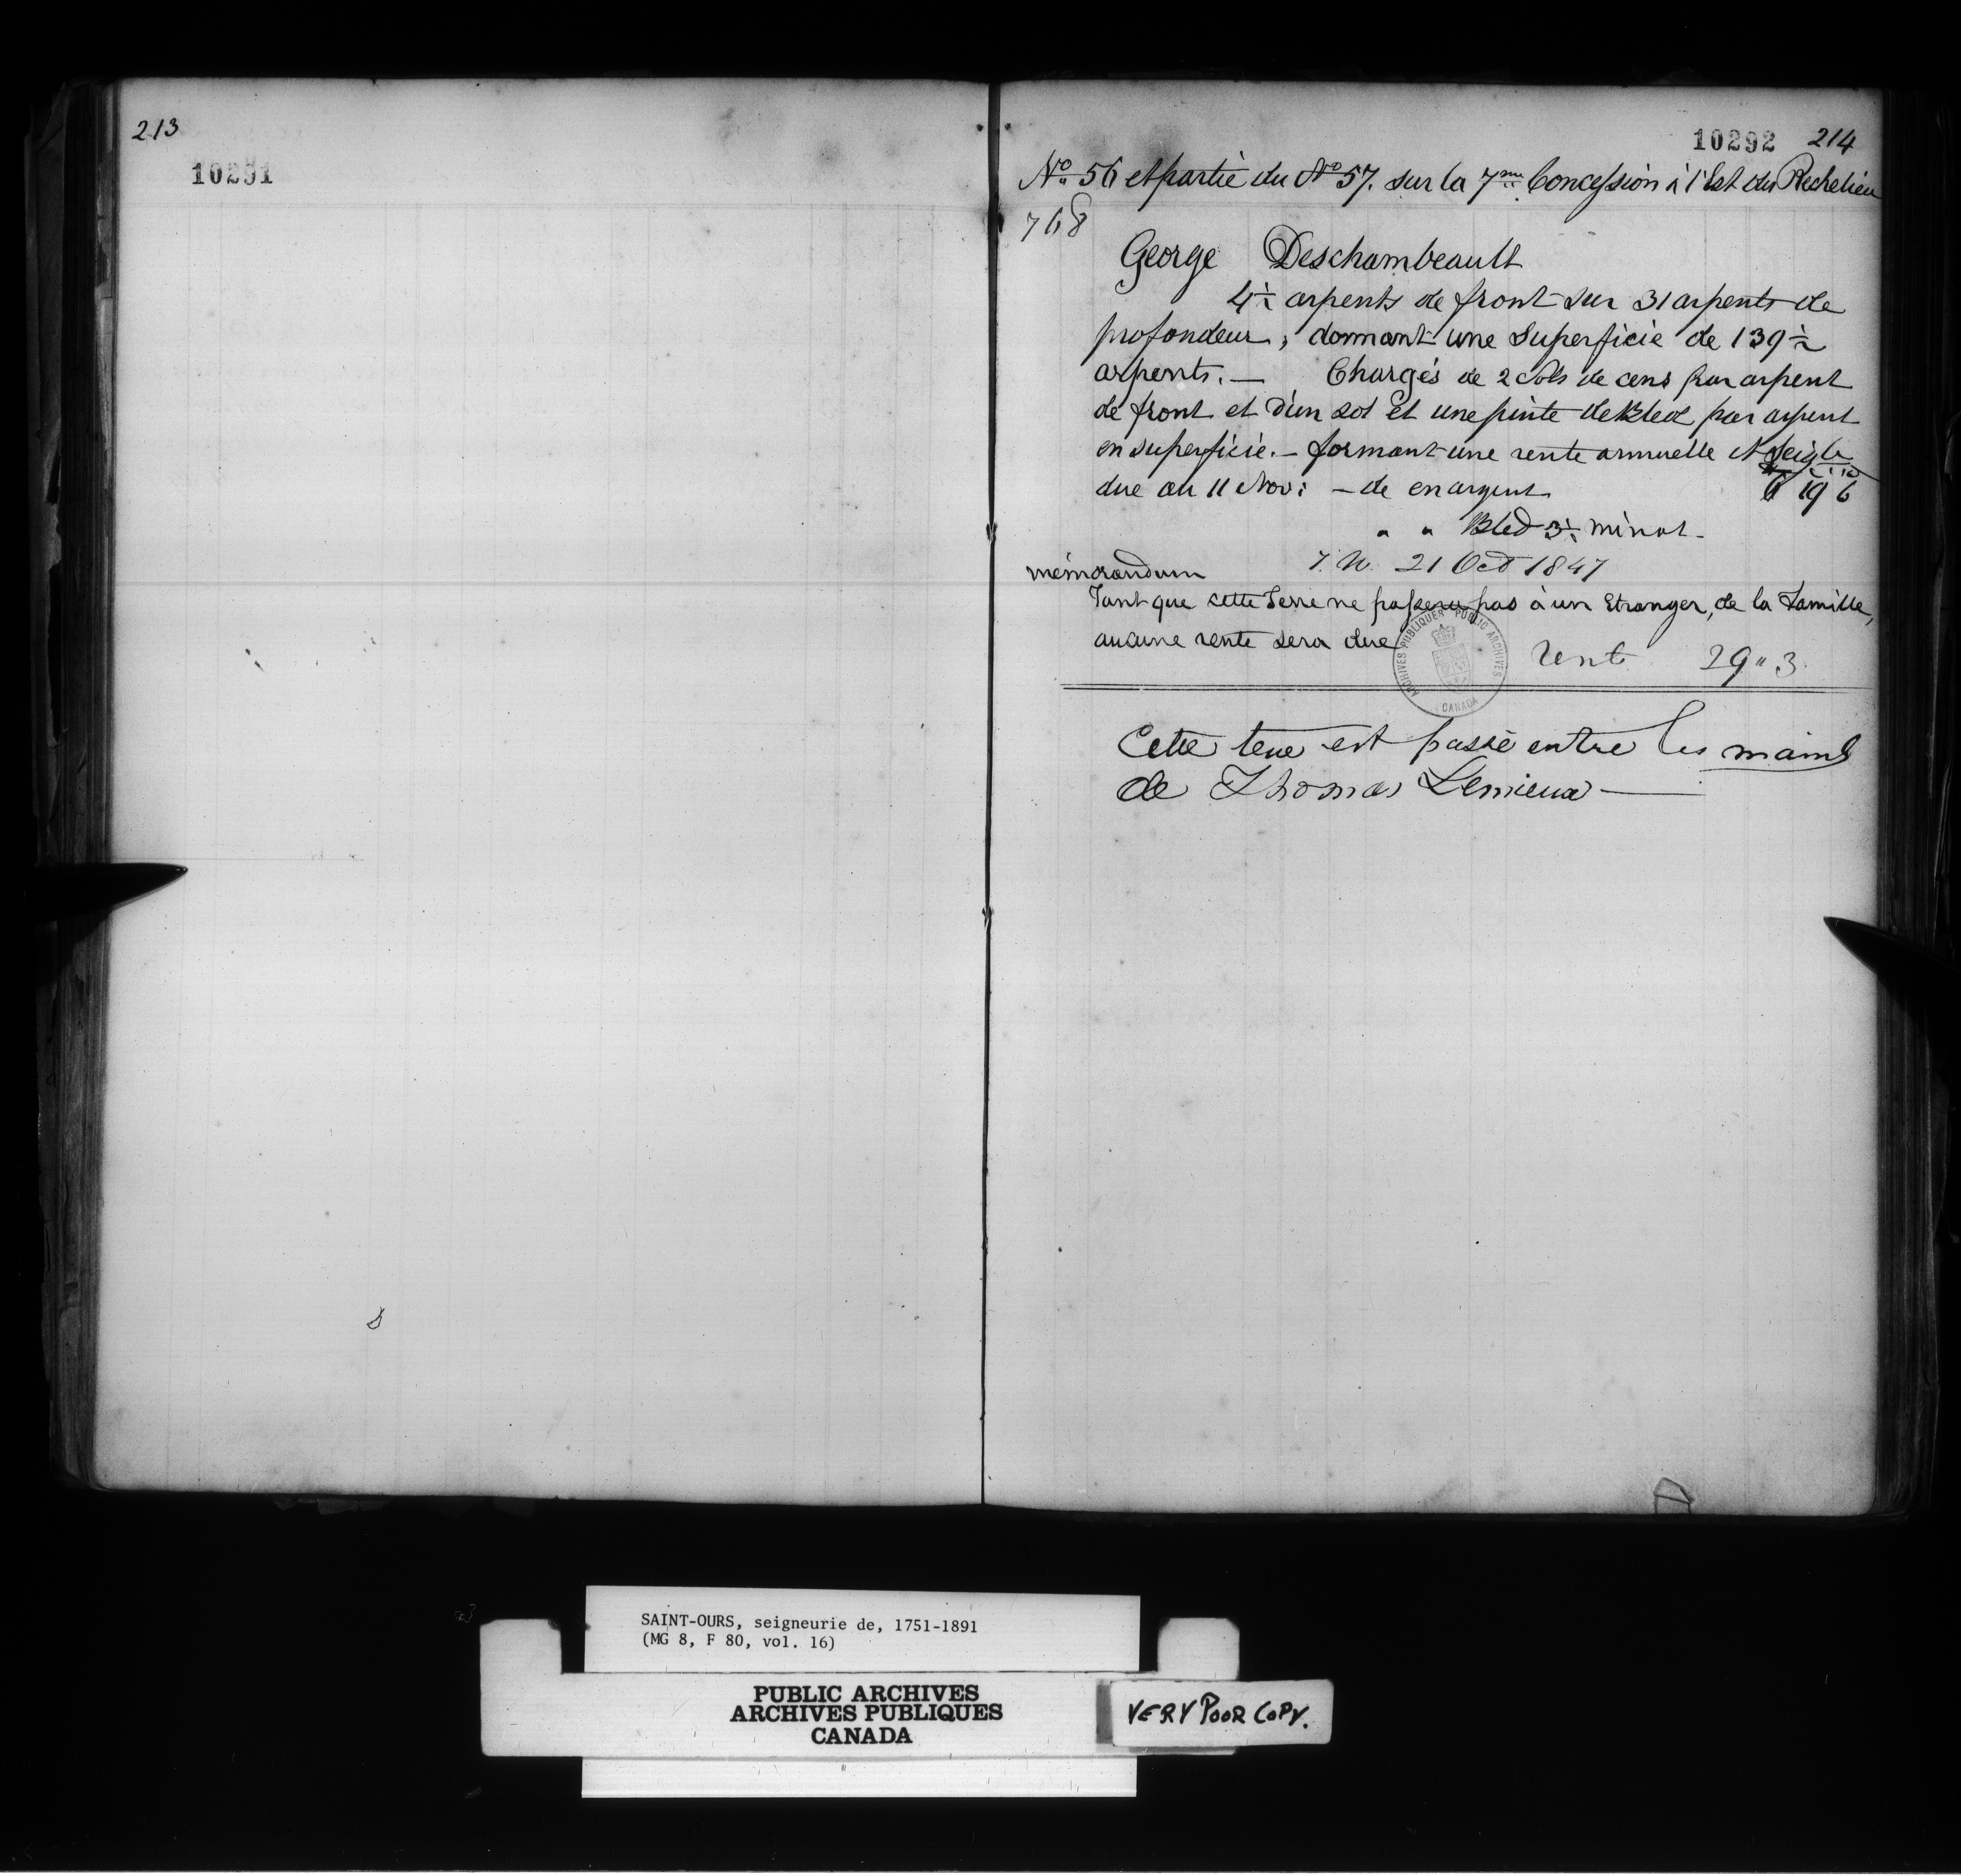 213
10291
10292 214
No. 56 et partie du No 57. sur la 7me Concession à l'Est du Rechelieu
768
George Deschambeault
4½ arpents de front sur 31 arpents de
profondeur, donnant une Superficie de 139½
arpents. — Chargés de 2 Sols de cens par arpent
de front et d'un sol et une pinte de Bled par arpent
en superficie. — formant une rente annuelle et
due au 11 Nov: — de en argent 19 6
" " Bled 3½ minot -
21 Oct 1847
mémorandum
Tant que cette Terre ne passera pas à un Etranger, de la Famille,
aucune rente sera due
ARCHIVES PUBLIQUES PUBLIC ARCHIVES
CANADA
Rente 29 " 3
Cette terre est passé entre les mains
de Thomas Lemieux —
SAINT-OURS, seigneurie de, 1751-1891
(MG 8, F 80, vol. 16)
PUBLIC ARCHIVES
ARCHIVES PUBLIQUES
CANADA
VERY POOR COPY.